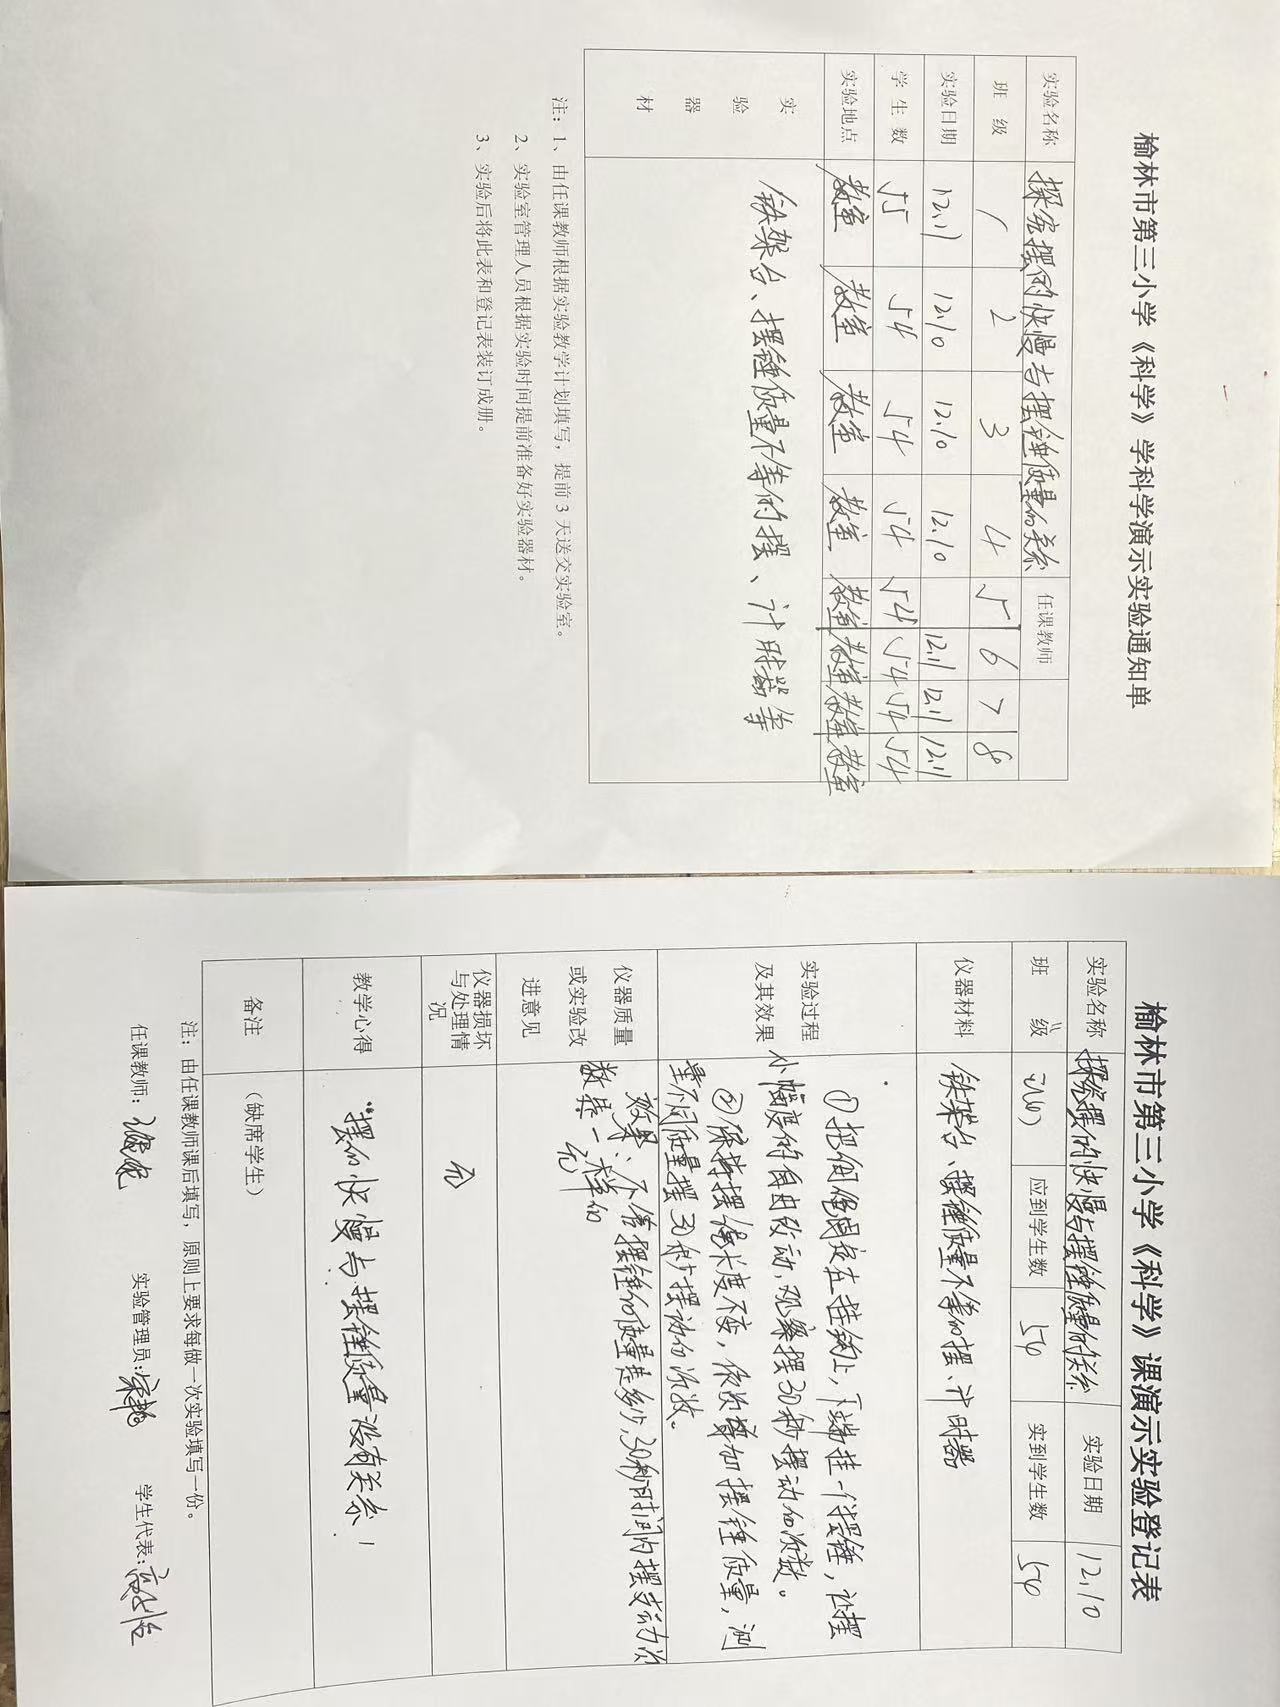 榆林市第三小学《科学》学科学演示实验通知单
实验名称 探究摆的快慢与摆锤质量的关系 任课教师
班级 1 2 3 4 5 6 7 8
实验日期 12.11 12.10 12.10 12.10 12.11 12.11 12.11
学生数 55 54 54 54 54 54 54 54
实验地点 教室 教室 教室 教室 教室 教室 教室 教室
实验器材 铁架台、摆锤质量不等的摆、计时器等
注：1、由任课教师根据实验教学计划填写，提前3天送交实验室。
2、实验室管理人员根据实验时间提前准备好实验器材。
3、实验后将此表和登记表装订成册。
榆林市第三小学《科学》课演示实验登记表
实验名称 探究摆的快慢与摆锤质量的关系 实验日期 12.10
班级 应到学生数 54 实到学生数 54
仪器材料 铁架台、摆锤质量不等的摆、计时器
实验过程及其效果 ①把细绳固定在挂钩上，下端挂一个摆锤，让摆
小幅度的自由摆动，观察摆30秒摆动的次数。
②保持摆绳长度不变，依次增加摆锤质量，测
量不同质量摆30秒摆动的次数。
效果：不管摆锤的质量是多少，30秒时间内摆动次
数是一样的
仪器质量或实验改进意见 无
仪器损坏与处理情况 无
教学心得 "摆的快慢与摆锤质量没有关系"
备注 （缺席学生）
注：由任课教师课后填写，原则上要求每做一次实验填写一份。
任课教师： 实验管理员： 学生代表：